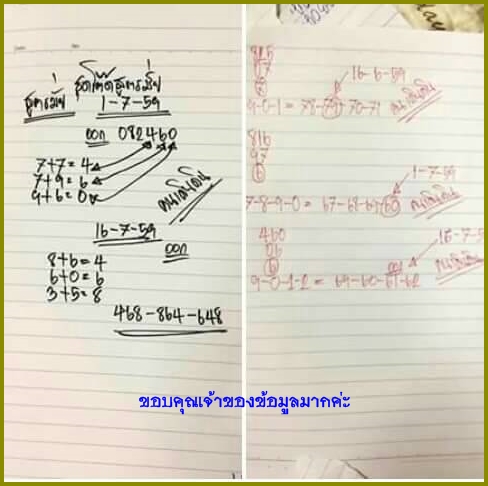 สูตรมั่ว
สูตรโต๊ดสูตรมั่ว
1-7-59
ออก 082460
7+7=4
7+9=6
9+6=0
คนเดินดิน
16-7-59
ออก
8+6=4
6+0=6
3+5=8
468-864-648
815
97
16-6-59
9-0-1= 70-71
คนเดินดิน
816
97
6
1-7-59
7-8-9-0= 67-68-69-60
คนเดินดิน
460
06
6
16-7-5
9-0-1-2= 69-60-61-62
คนเดินดิน
ขอบคุณเจ้าของข้อมูลมากค่ะ